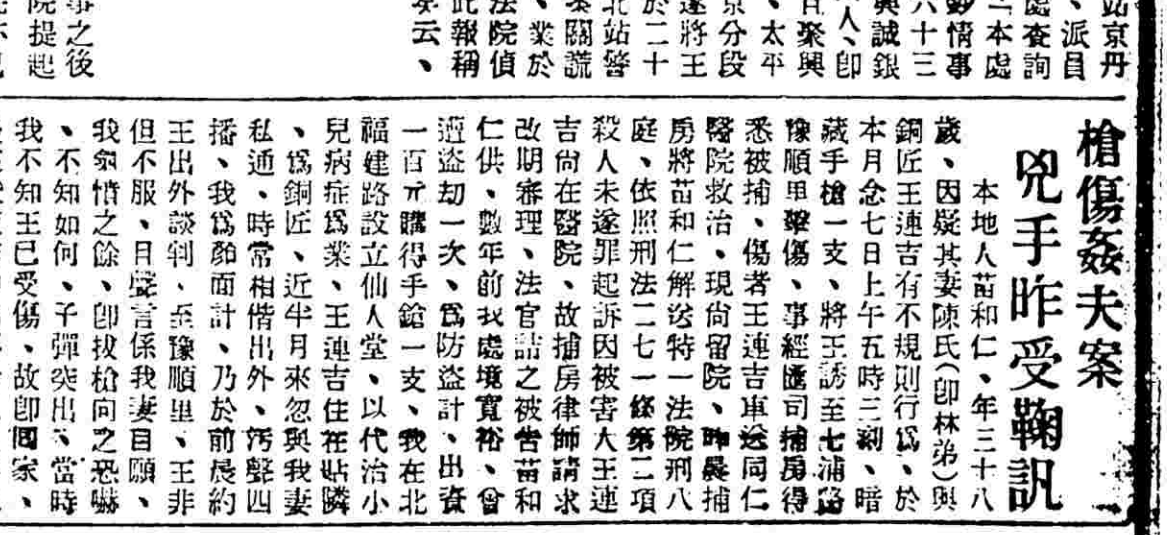 站京丹
、派員
處查詢
「本處
鈔情事
六十三
興誠銀
人、卽
聚興
、太平
京分段
遂將王
於二十
北站警
關謊
、業於
法院偵
此報稱
云、
事之後
院提起
槍傷姦夫案
兇手昨受鞠訊
本地人苗和仁、年三十八
歲、因疑其妻陳氏(卽林弟)與
銅匠王連吉有不規則行爲、於
本月念七日上午五時三刻、暗
藏手槍一支、將王誘至七浦路
豫順里擊傷、事經匯司捕房得
悉被捕、傷者王連吉車送同仁
醫院救治、現尙留院、昨晨捕
房將苗和仁解送特一法院刑八
庭、依照刑法二七一條第二項
殺人未遂罪起訴因被害人王連
吉尙在醫院、故捕房律師請求
改期審理、法官詰之被吿苗和
仁供、數年前我處境寬裕、曾
遭盜刧一次、爲防盜計、出資
一百元購得手鎗一支、我在北
福建路設立仙人堂、以代治小
兒病症爲業、王連吉住在貼隣
、爲銅匠、近半月來忽與我妻
私通、時常相偕出外、汚聲四
播、我爲顏面計、乃於前晨約
王出外談判、至豫順里、王非
但不服、且聲言係我妻自願、
我氣憤之餘、卽拔槍向之恐嚇
、不知如何、子彈突出、當時
我不知王已受傷、故卽囘家、